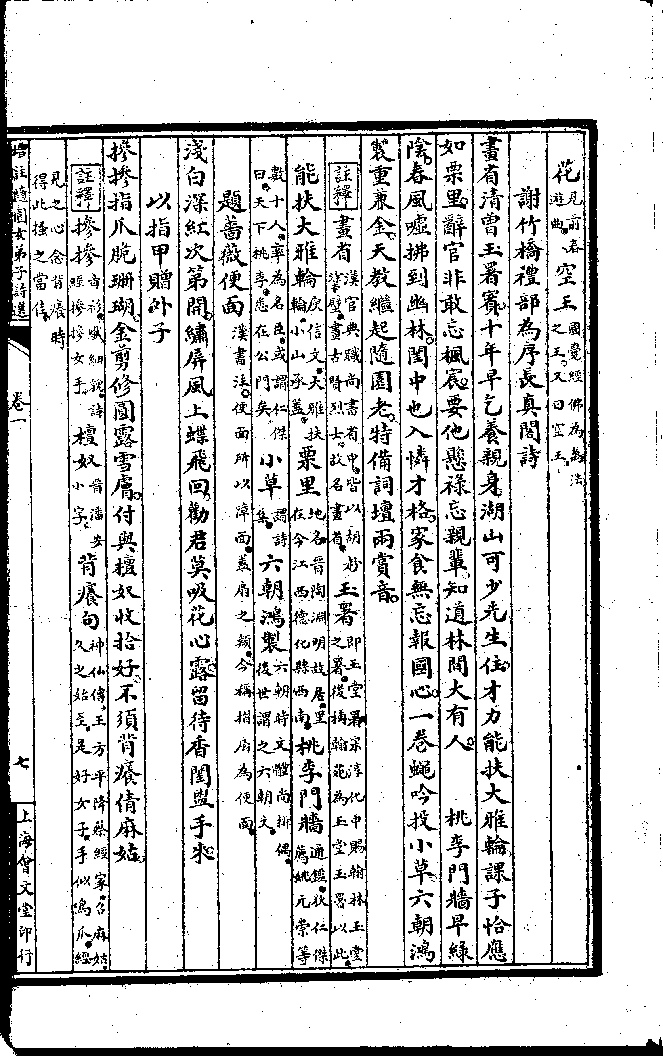 花見前春遊曲空王圓覺經佛為萬法之王又曰空王
謝竹橋禮部為序長真閣詩
畫省清曹玉署賓十年早乞養親身湖山可少先生住才力能扶大雅輪課子恰應
如栗里辭官非敢忘楓宸要他懸祿忘親輩知道林間大有人　桃李門牆早綠
陰春風噓拂到幽林閨中也入憐才格家食無忘報國心一卷蠅吟投小草六朝鴻
製重兼金天教繼起隨園老特備詞壇兩賞音
註釋畫省漢官典職尚書省中皆以胡粉塗壁畫古賢烈士故名畫省玉署即玉堂署宋淳化中賜翰林玉堂之署後稱翰苑為玉堂玉署以此
能扶大雅輪庾信文大雅扶輪小山承蓋栗里地名晉陶淵明故居里在今江西德化縣西南桃李門牆通鑑狄仁傑薦姚元崇等
數十人率為名臣或謂仁傑曰天下桃李悉在公門矣小草謂詩集六朝鴻製六朝時文體尚排偶後世謂之六朝文
題薔薇便面漢書注便面所以障面蓋扇之類今稱指扇為便面
淺白深紅次第開繡屏風上蝶飛回勸君莫吸花心露留待香閨盥手來
以指甲贈外子
摻摻指爪脆珊瑚金剪修圓露雪膚付與檀奴收拾好不須背癢倩麻姑
註釋摻摻音衫纖細貌詩經摻摻女手檀奴晉潘安小字背癢句神仙傳王方平降蔡經家召麻姑久之始至是好女子手似鳥爪經
見之心念背癢時得此搔之當佳
增註隨園女弟子詩選　卷一　七　上海會文堂印行